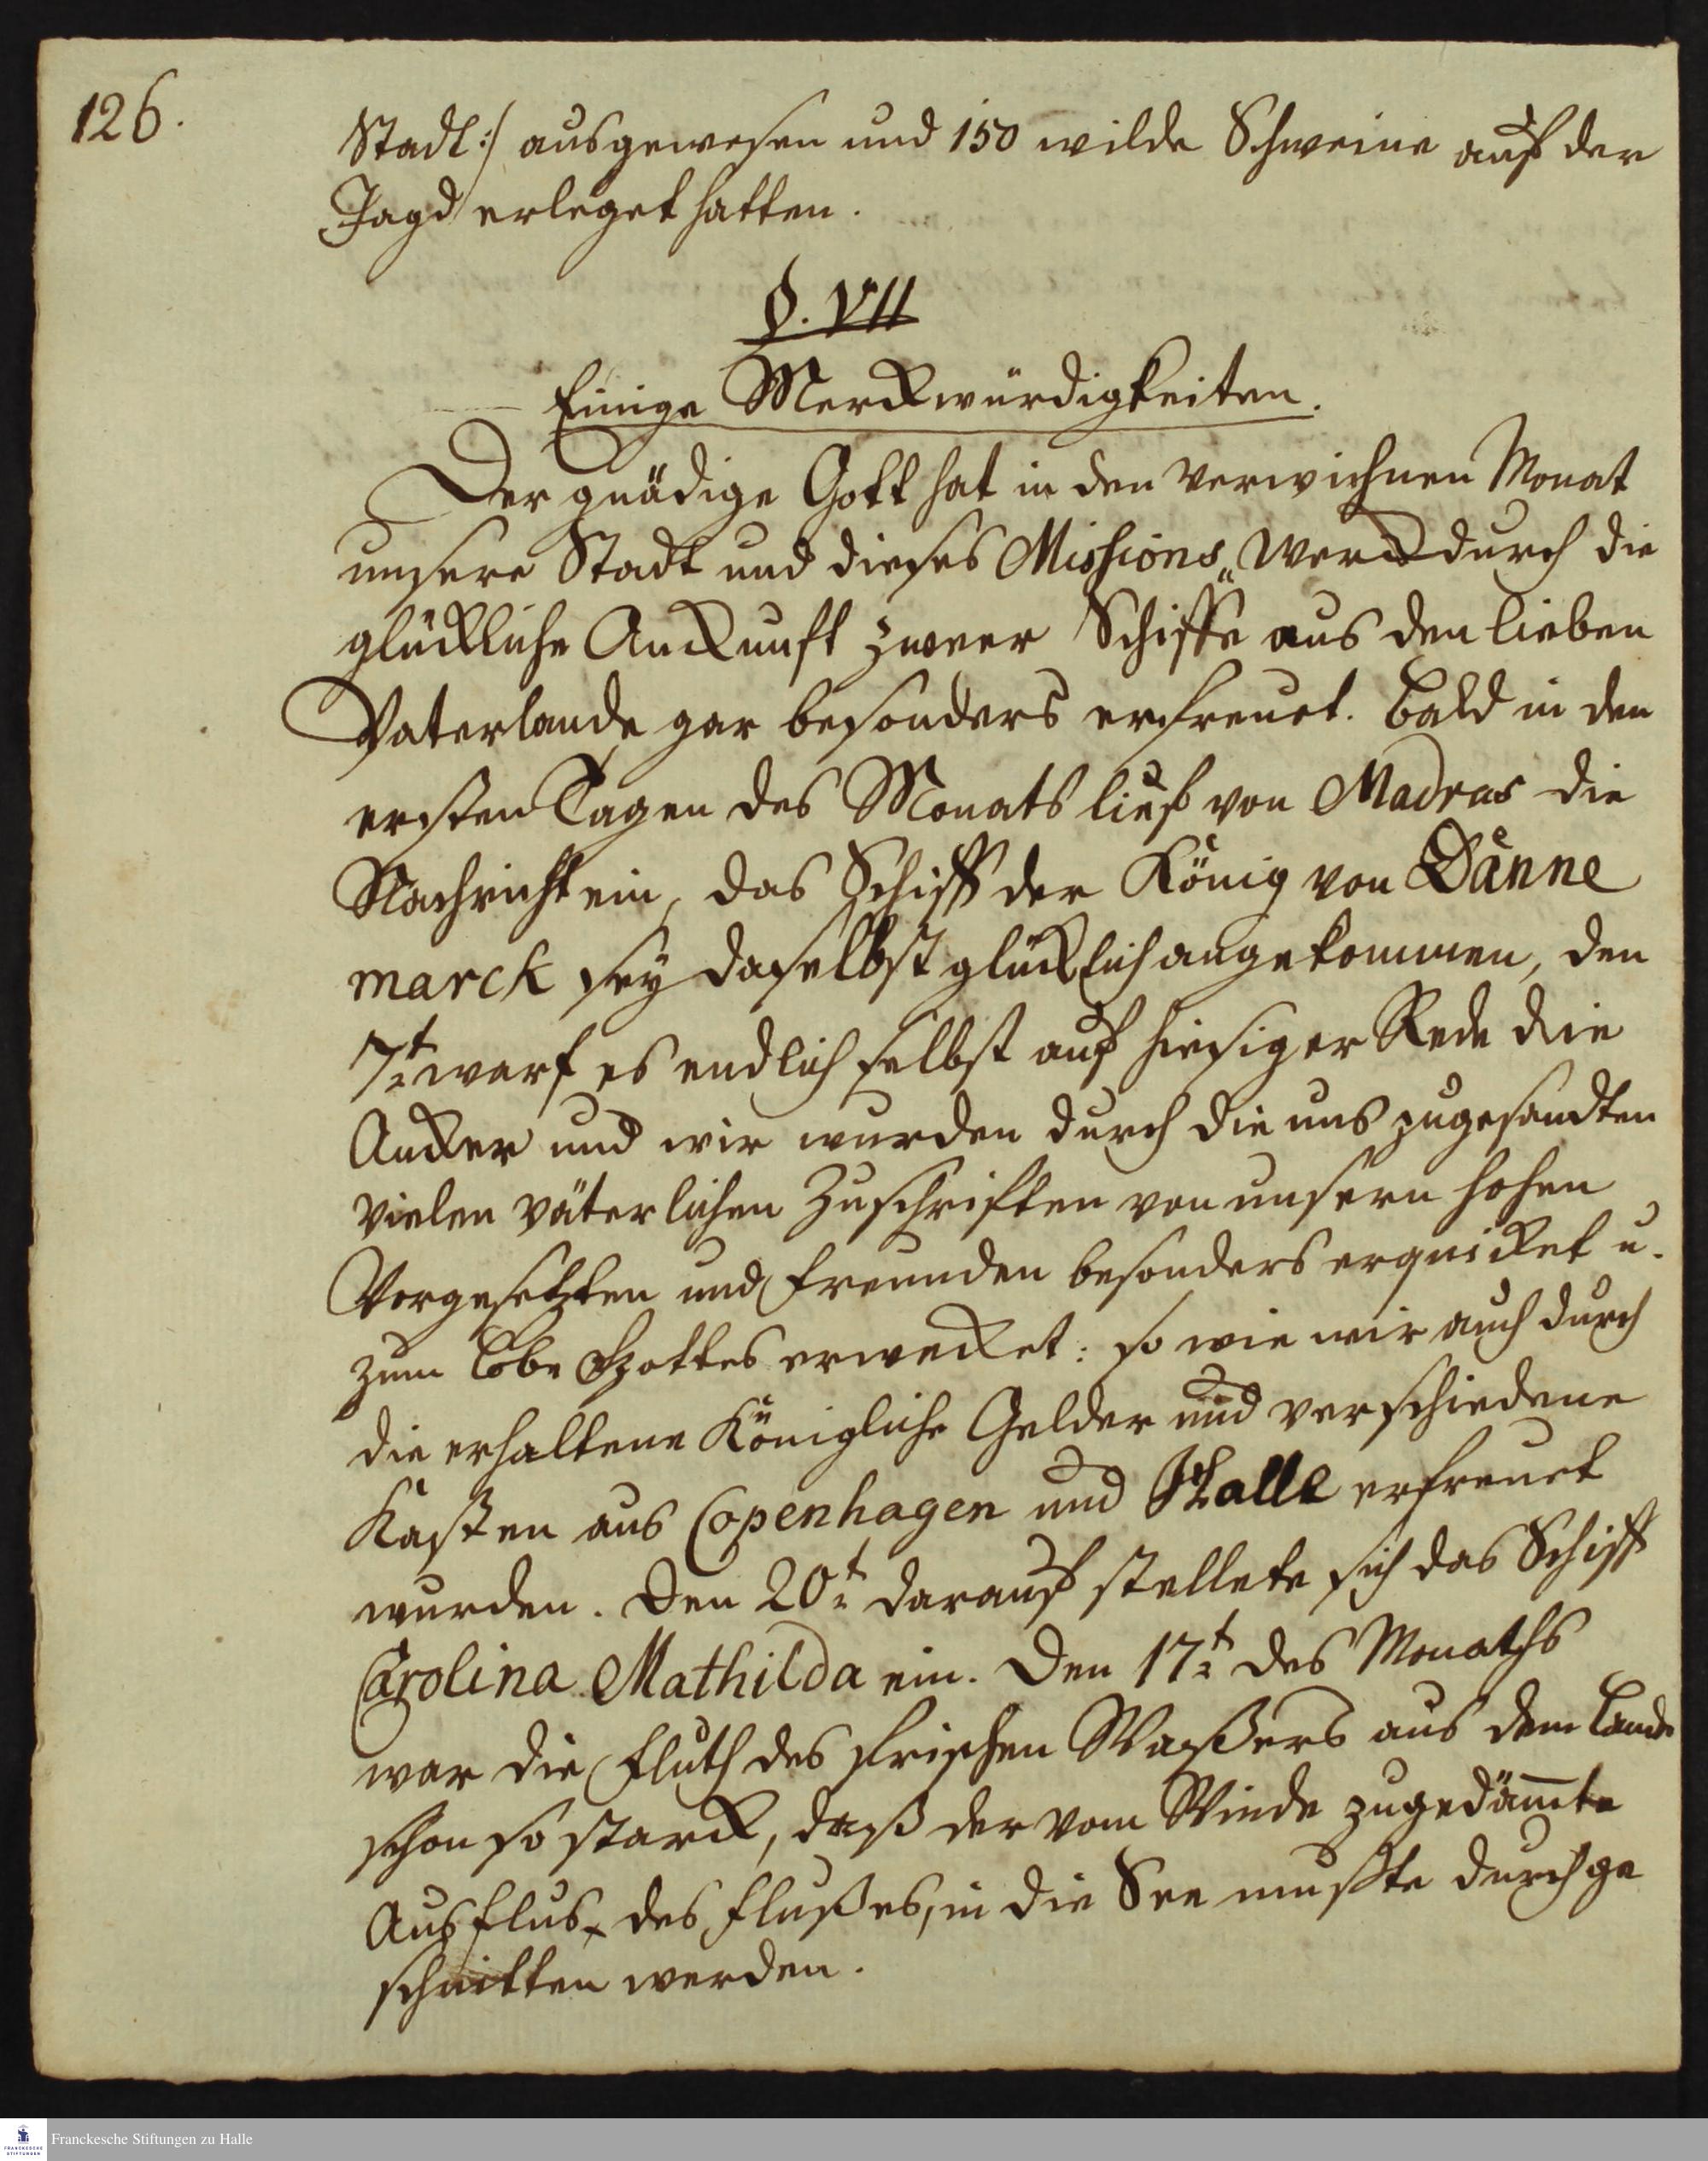 126.
Stadt :/ ausgewesen und 150 wilde Schweine auf der
Jagd erleget hatten.
§. VII
Einige Merckwürdigkeiten.
Der gnädige Gott hat in den verwichnen Monat
unsere Stadt und dieses Missions„Werck durch die
glückliche Anckunft zweer Schiffe aus den lieben
Vaterlande gar besonders erfreuet. Bald in den
ersten Tagen des Monats lief von Madras die
Nachricht ein, das Schiff der König von Dänne
marck sey daselbst glücklich angekommen, den
7t warf es endlich selbst auf hiesiger Rede die
Ancker und wir wurden durch die uns zugesandten
vielen väterlichen Zuschriften von unsern hohen
Vorgesetzten und Freunden besonders erquicket u.
zum Lobe Gottes erwecket: so wie wir auch durch
die erhaltene Königliche Gelder und verschiedene
Kasten aus Copenhagen und Halle erfreuet
wurden. Den 20t darauf stellete sich das Schiff
Carolina Mathilda ein. Den 17t des Monaths
war die Fluth des frischen Waßers aus dem Lande
schon so starck, daß der vom Winde zugedäm̅te
Ausflus des Flußes, in die See muste durchge
schnitten werden.
Franckesche Stiftungen zu Halle
FRANCKESCHE
STIFTUNGEN